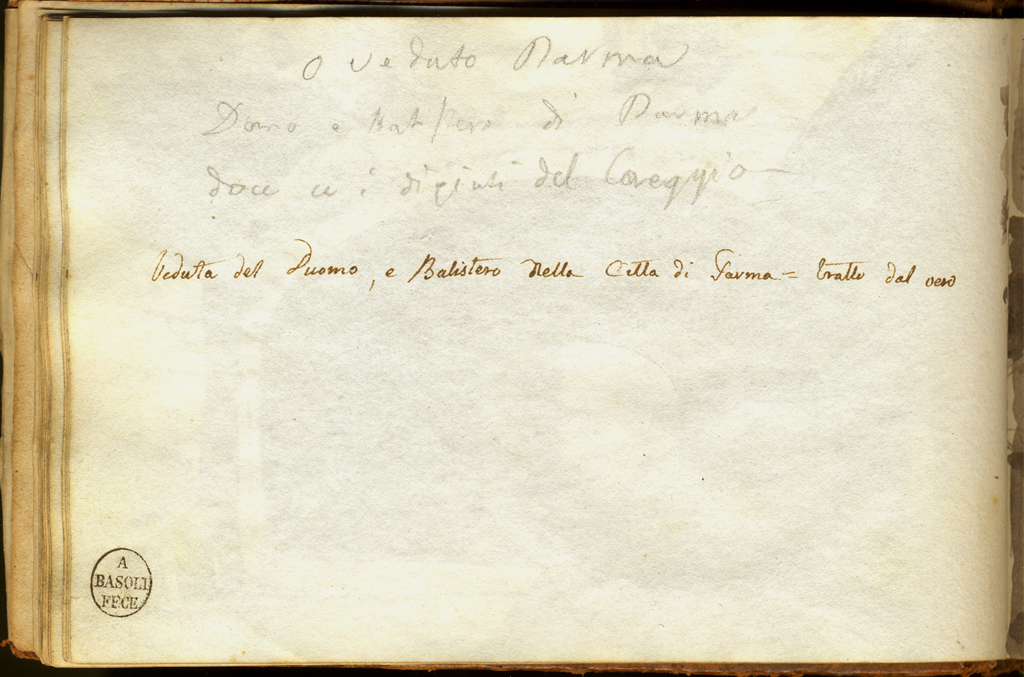 o veduto Parma
Domo e Batistero di Parma
dove ce i dipinti del Coreggio
Veduta del Duomo, e Batistero nella Citta di Parma = tratti dal vero
A
BASOLI
FECE